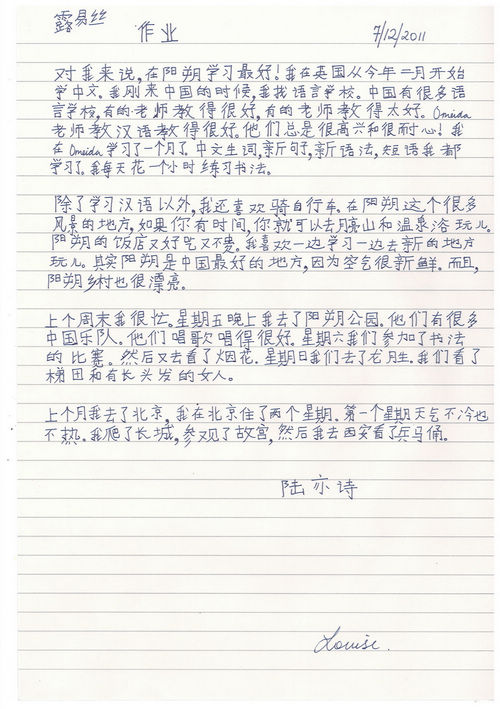 露易丝
作业 7/12/2011
对我来说,在阳朔学习最好!我在英国从今年二月开始
学中文。我刚来中国的时候,我找语言学校。中国有很多语
言学校,有的老师教得很好,有的老师教得太好。Omeida
老师教汉语教得很好。他们总是很高兴和很耐心!我
在Omeida学习了一个月了。中文生词,新句子,新语法,短语我都
学习了。我每天花一个小时练习书法。
除了学习汉语以外,我还喜欢骑自行车。在阳朔这个很多
风景的地方,如果你有时间,你就可以去月亮山和温泉浴玩儿。
阳朔的饭店又好吃又不贵。我喜欢一边学习一边去新的地方
玩儿。其实阳朔是中国最好的地方,因为空气很新鲜。而且,
阳朔乡村也很漂亮。
上个周末我很忙。星期五晚上我去了阳朔公园。他们有很多
中国乐队。他们唱歌唱得很好。星期六我们参加了书法
的比赛。然后又去看了烟花。星期日我们去了龙月生。我们看了
梯田和有长头发的女人。
上个月我去了北京,我在北京住了两个星期。第一个星期天气不冷也
不热。我爬了长城,参观了故宫,然后我去西安看了兵马俑。
陆亦诗
Louise.